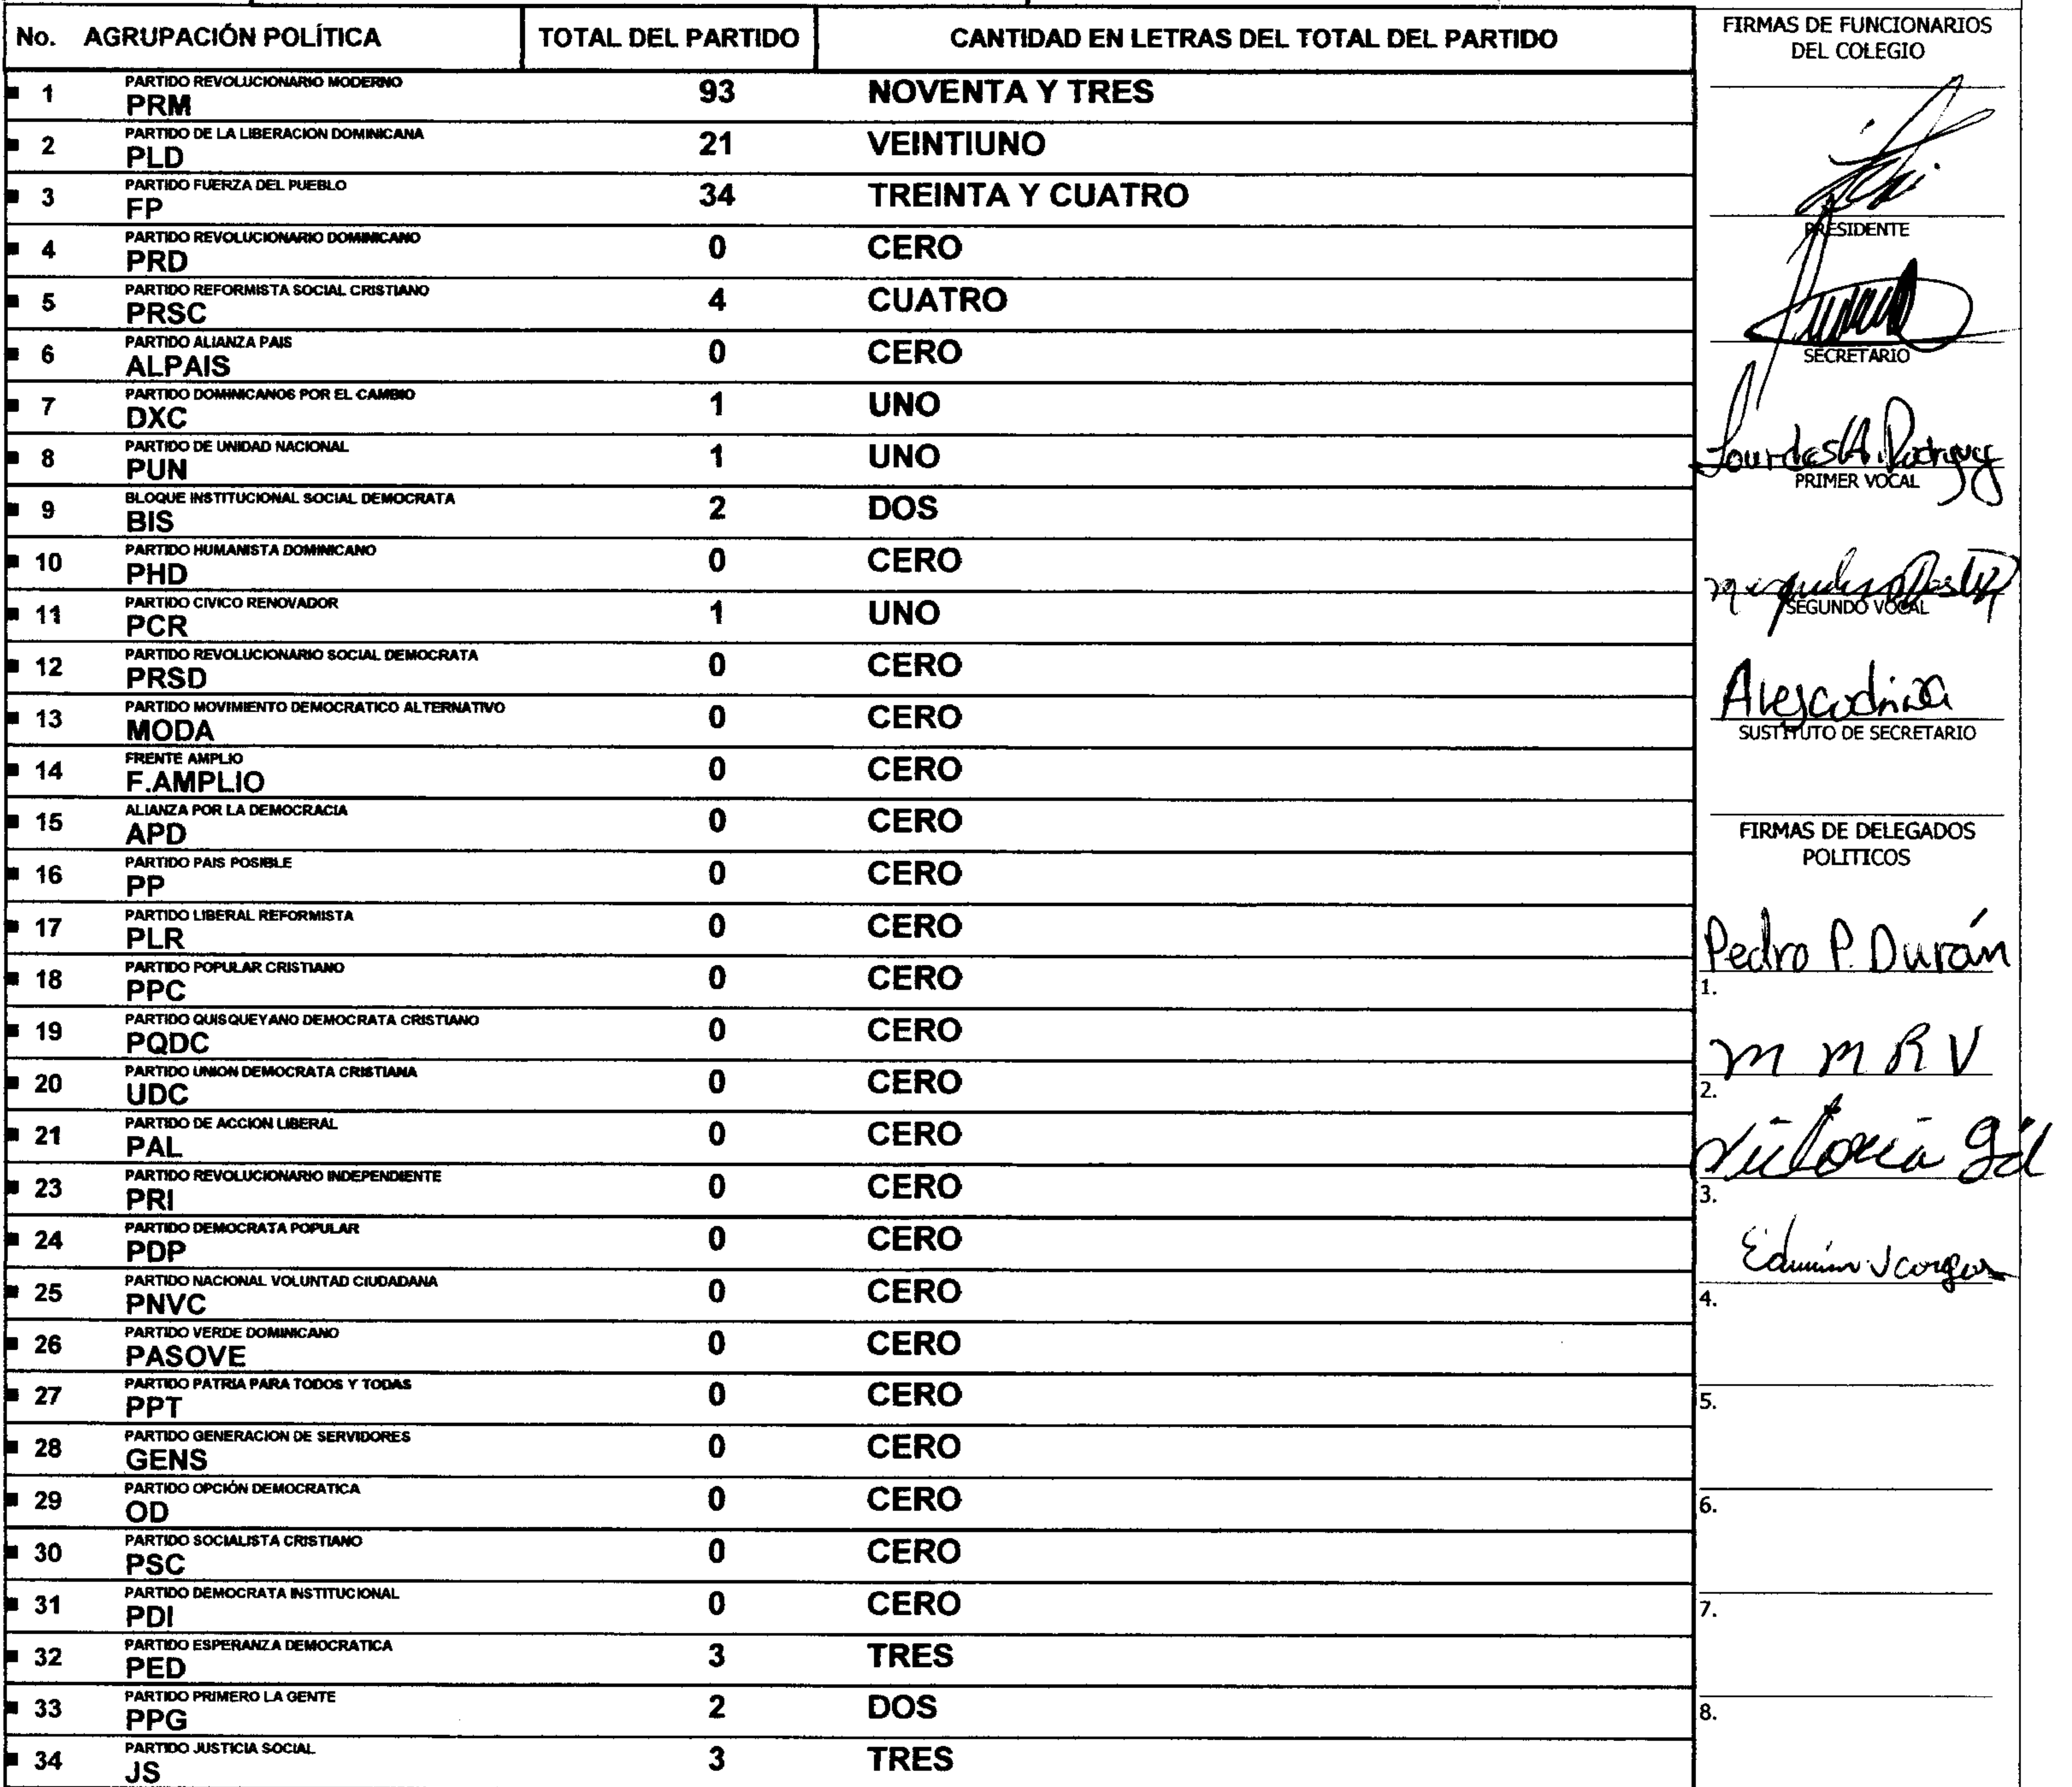 No. AGRUPACIÓN POLÍTICA TOTAL DEL PARTIDO CANTIDAD EN LETRAS DEL TOTAL DEL PARTIDO
PARTIDO REVOLUCIONARIO MODERNO
1 PRM 93 NOVENTA Y TRES
PARTIDO DE LA LIBERACION DOMINICANA
2 PLD 21 VEINTIUNO
PARTIDO FUERZA DEL PUEBLO
3 FP 34 TREINTA Y CUATRO
PARTIDO REVOLUCIONARIO DOMINICANO
4 PRD 0 CERO
PARTIDO REFORMISTA SOCIAL CRISTIANO
5 PRSC 4 CUATRO
PARTIDO ALIANZA PAIS
6 ALPAIS 0 CERO
PARTIDO DOMINICANOS POR EL CAMBIO
7 DXC 1 UNO
PARTIDO DE UNIDAD NACIONAL
8 PUN 1 UNO
BLOQUE INSTITUCIONAL SOCIAL DEMOCRATA
9 BIS 2 DOS
PARTIDO HUMANISTA DOMINICANO
10 PHD 0 CERO
PARTIDO CIVICO RENOVADOR
11 PCR 1 UNO
PARTIDO REVOLUCIONARIO SOCIAL DEMOCRATA
12 PRSD 0 CERO
PARTIDO MOVIMIENTO DEMOCRATICO ALTERNATIVO
13 MODA 0 CERO
FRENTE AMPLIO
14 F.AMPLIO 0 CERO
ALIANZA POR LA DEMOCRACIA
15 APD 0 CERO
PARTIDO PAIS POSIBLE
16 PP 0 CERO
PARTIDO LIBERAL REFORMISTA
17 PLR 0 CERO
PARTIDO POPULAR CRISTIANO
18 PPC 0 CERO
PARTIDO QUISQUEYANO DEMOCRATA CRISTIANO
19 PQDC 0 CERO
PARTIDO UNION DEMOCRATA CRISTIANA
20 UDC 0 CERO
PARTIDO DE ACCION LIBERAL
21 PAL 0 CERO
PARTIDO REVOLUCIONARIO INDEPENDIENTE
23 PRI 0 CERO
PARTIDO DEMOCRATA POPULAR
24 PDP 0 CERO
PARTIDO NACIONAL VOLUNTAD CIUDADANA
25 PNVC 0 CERO
PARTIDO VERDE DOMINICANO
26 PASOVE 0 CERO
PARTIDO PATRIA PARA TODOS Y TODAS
27 PPT 0 CERO
PARTIDO GENERACION DE SERVIDORES
28 GENS 0 CERO
PARTIDO OPCIÓN DEMOCRATICA
29 OD 0 CERO
PARTIDO SOCIALISTA CRISTIANO
30 PSC 0 CERO
PARTIDO DEMOCRATA INSTITUCIONAL
31 PDI 0 CERO
PARTIDO ESPERANZA DEMOCRATICA
32 PED 3 TRES
PARTIDO PRIMERO LA GENTE
33 PPG 2 DOS
PARTIDO JUSTICIA SOCIAL
34 JS 3 TRES
FIRMAS DE FUNCIONARIOS
DEL COLEGIO
PRESIDENTE
SECRETARIO
Lourdes A.
PRIMER VOCAL
SEGUNDO VOCAL
SUSTITUTO DE SECRETARIO
FIRMAS DE DELEGADOS
POLITICOS
Pedro P. Durán
1.
M M R V
2.
Victoria Gil
3.
4.
5.
6.
7.
8.